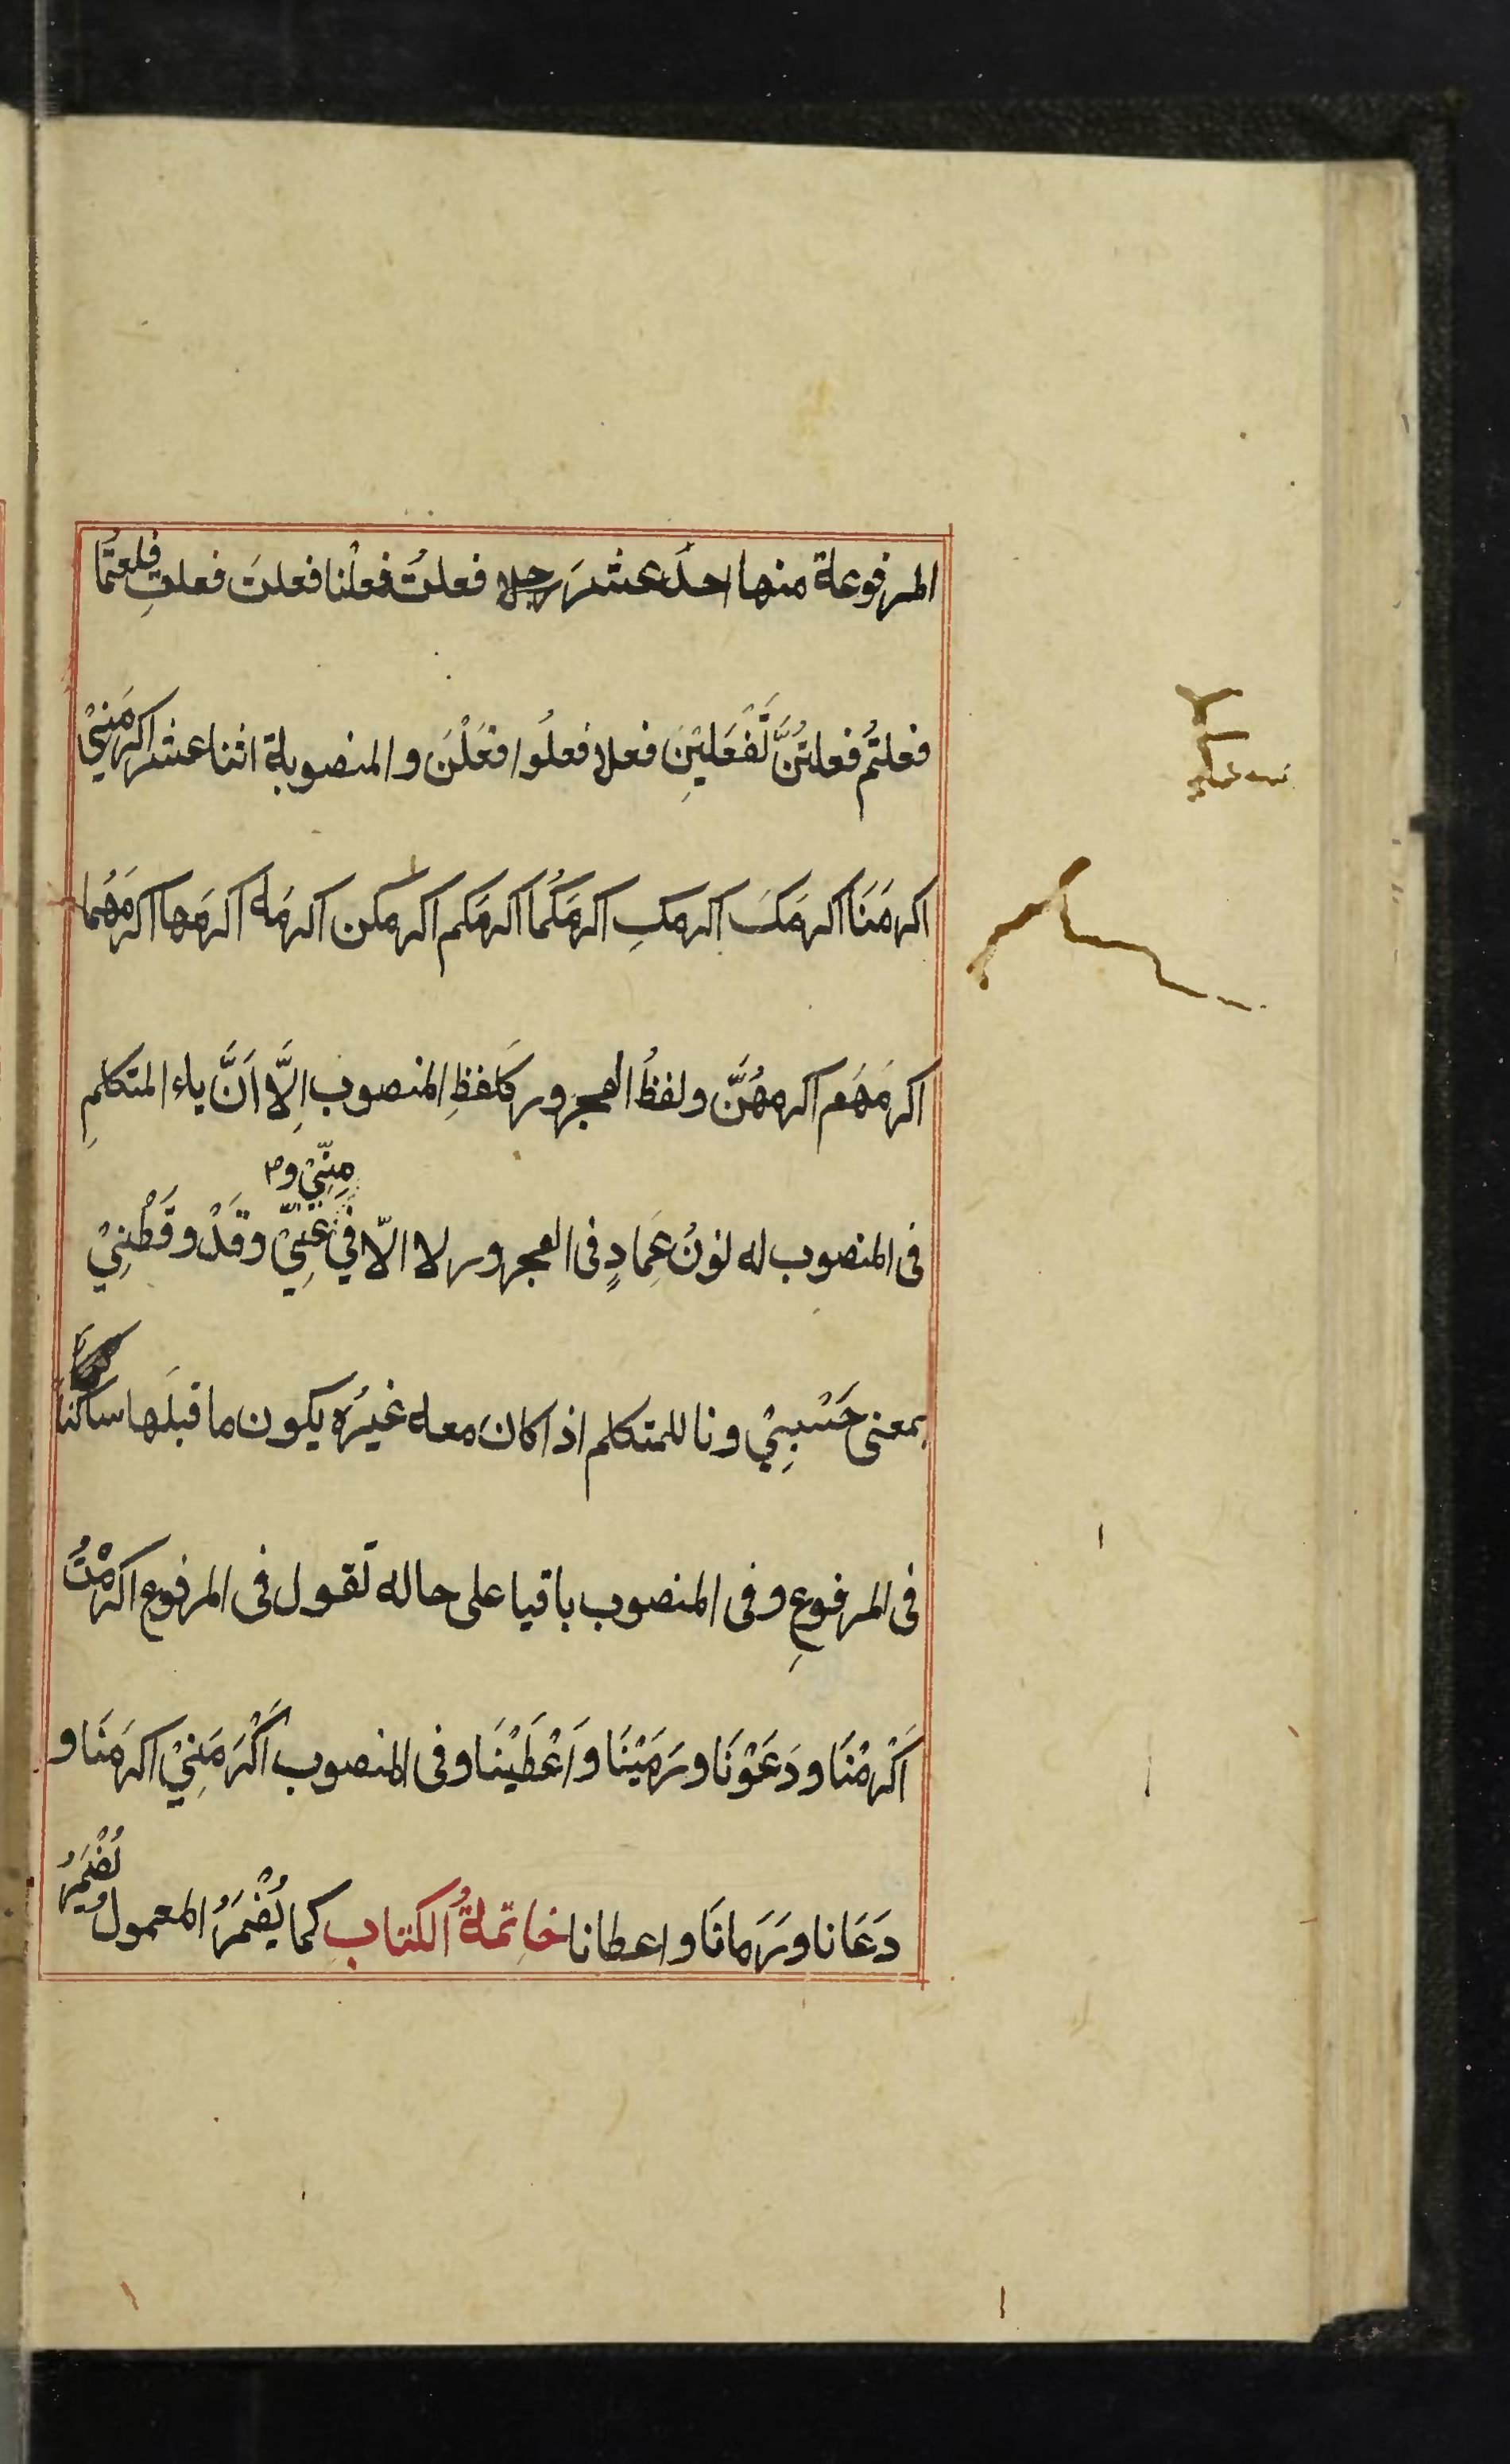 المرفوعة منها احدَ عشرَ رجلا فعلتُ فعلْنا فعلتَ فعلتِ فلعتُمَا
فعلتُم فعلتُنَّ تَفْعَلِيْنَ فعلا فعلُوا فعَلْنَ والمنصوبة اثنا عشر اكرمَنِيْ
اكرمَنَا اكرمَكَ اكرمكِ اكرمَكُمَا اكرمَكم اكرمكن اكرمَه اكرمَها اكرمَهُما
اكرمَهَم اكرمهُنَّ ولفظُ المجرور كَلفظِ المنصوب اِلَّا اَنَّ ياء المتكلمِ
مِنِّيْ و
فى المنصوب له نونُ عِمَادٍ فى المجرور لا الّا فِي عَنِّيْ وقَدْ وقَطْنِيْ
بمعنى حَسْبِيْ ونا للمتكلم اذا كان معه غيرُه يكون ما قبلَها ساكنًا
فى المرفوعِ وفى المنصوب باقيا على حاله تَقول فى المرفوع اكرمْتُ
اَكْرمْنَا ودَعَوْنَا ورَمَيْنَا واَعْطَيْنَا وفى المنصوب اَكْرَمَنِيْ اكرمَنَا و
دَعَانا ورَمانَا واعطانا خاتمةُ الكتاب كما يُضْمَرُ المعمول تُضْمَرُ